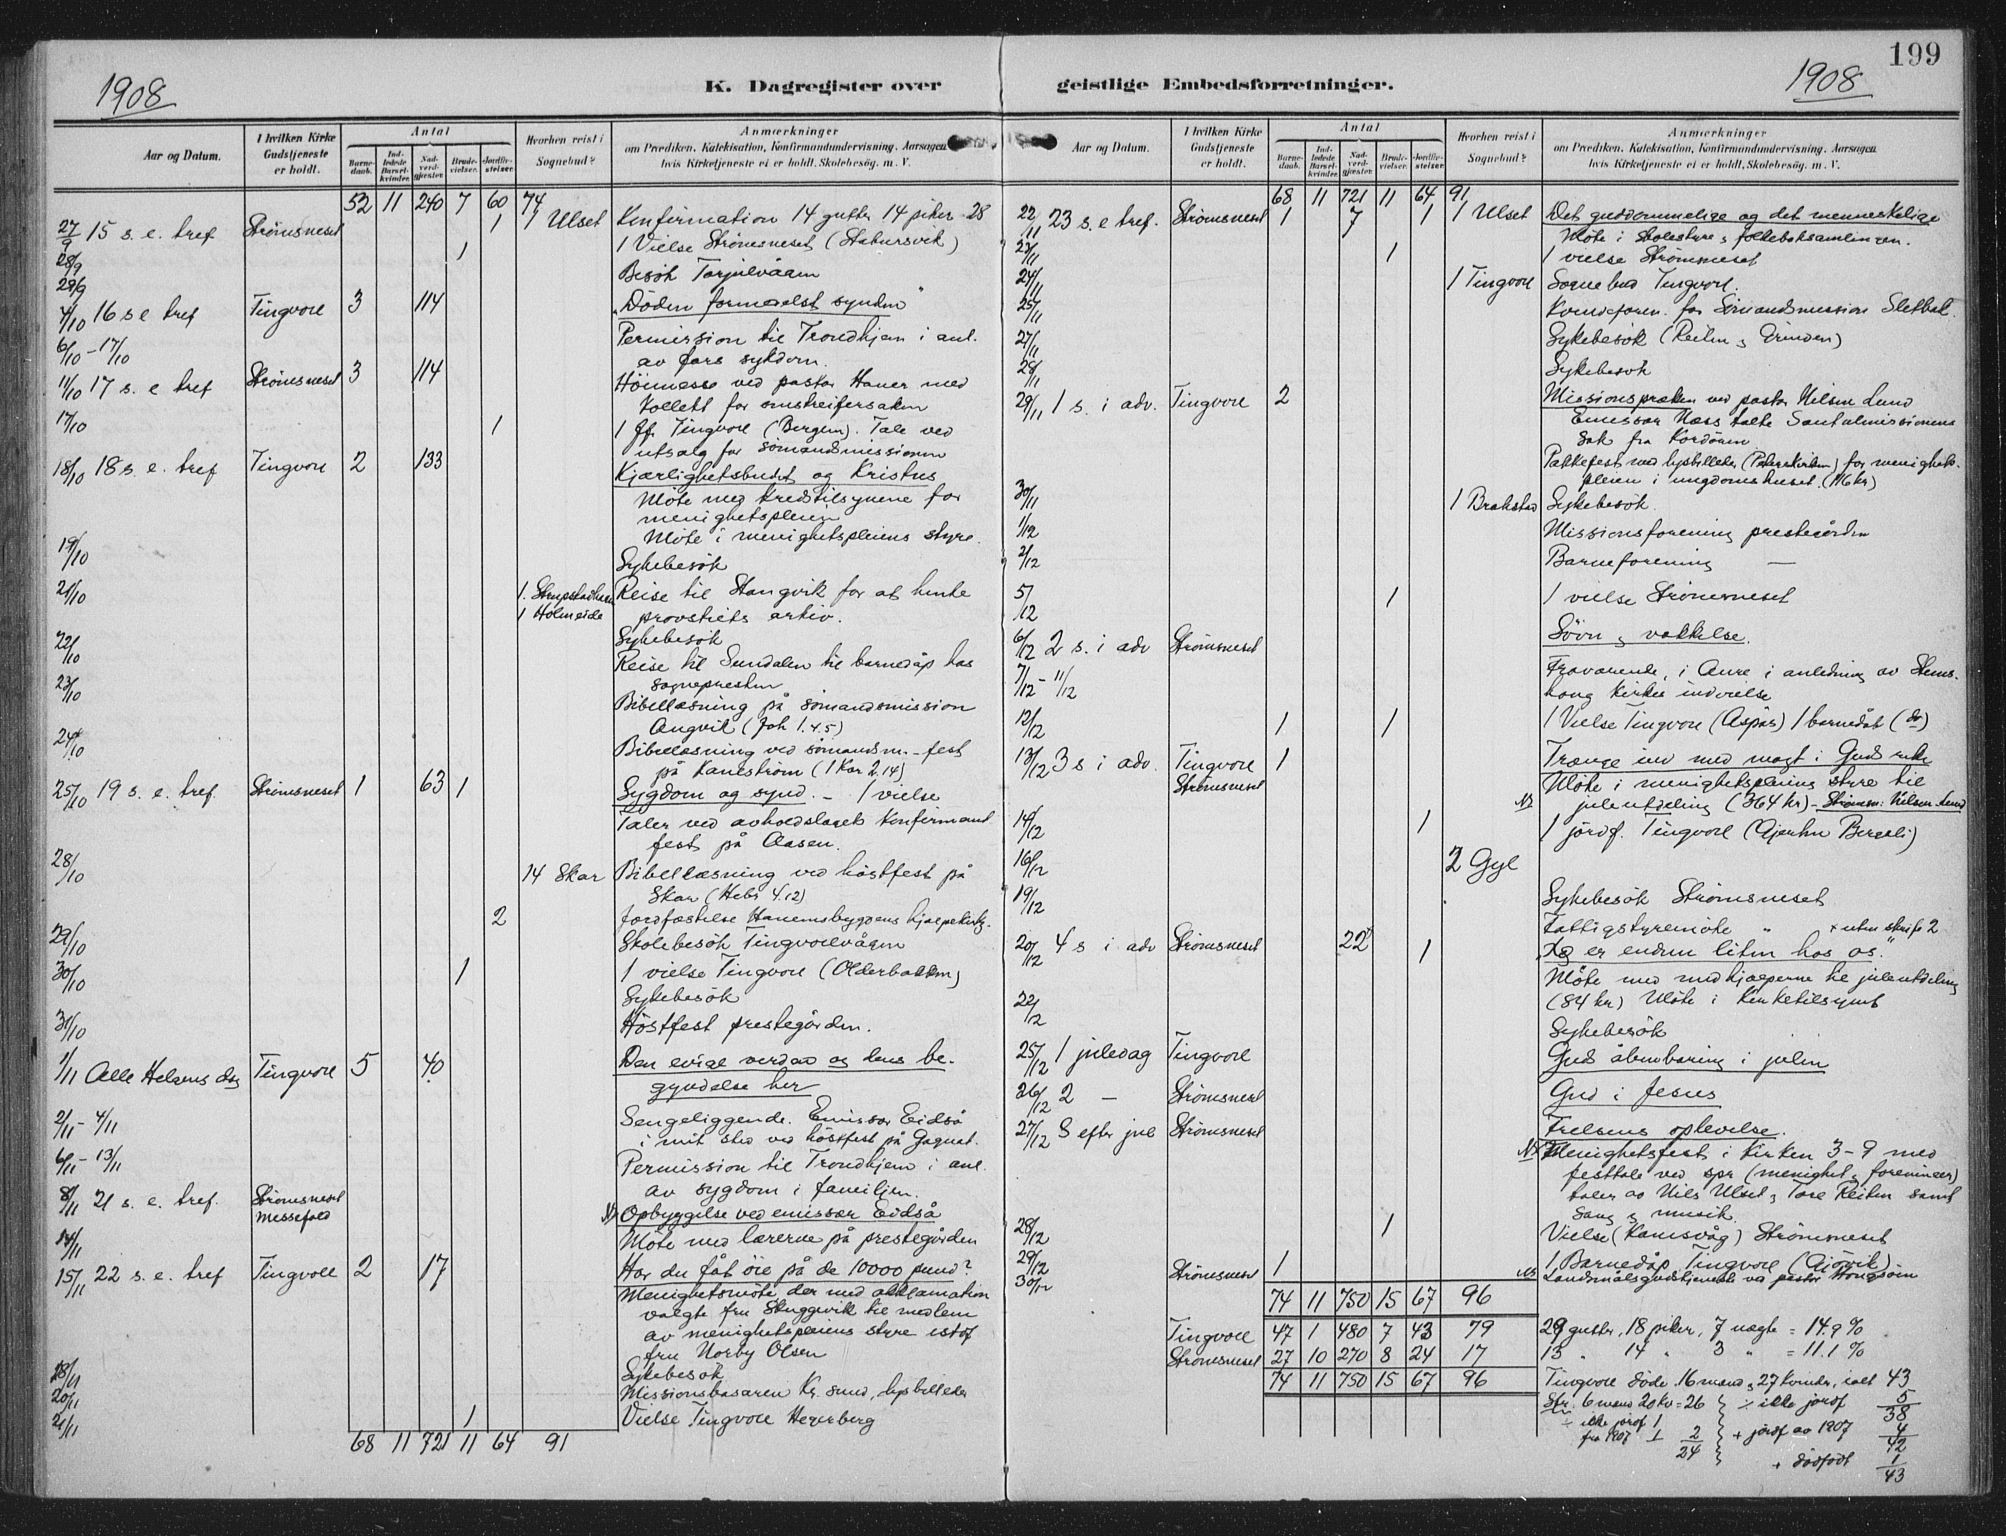 1908
K. Dagregister over
Aar og Datum.
I hvilken Kirke Gudstjeneste er holdt.
Antal
Barne-daab.
Ind-ledede Barsel-kvinder.
Nad-verd-gjæster.
Brude-vielser.
Jordfæ-stelser.
Hvorhen reist i Sognebud?
Anmærkninger
om Prædiken, Katekisation, Konfirmandundervisning, Aarsagen
hvis Kirketjeneste ei er holdt, Skolebesøg, m. V.
52 11 240 7 60 74
27/9 15 s. e. tref Strömsneset 1 1 Ulset Konfirmation 14 gutter 14 piker 28
28/9 1 1 Vielse Strömsneset (Stabursvik)
29/9 Besök Torjulvågen
4/10 16 s e tref Tingvoll 3 114 "Döden formedelst synden"
6/10 - 17/10 Permission til Trondhjem i anl.
av fars sykdom.
11/10 17 s. e tref Strömsneset 3 114 Höimesse ved pastor Haner med
kollekt for omstreifersaken
17/10 1 1 jf. Tingvoll (Bergem). Tale ved
utsalg for sömandsmissionen
18/10 18 s. e. tref Tingvoll 2 133 Kjærlighetsbudet og Kristus
Möte med kredstilsynene for
menighetspleien
Möte i menighetspleiens styre.
19/10 Sykebesök
21/10 1 Holmeide Reise til Stangvik for at hente
provstiets arkiv.
22/10 Sykebesök
Reise til Sundalen til barnedåp hos
23/10 sognepresten
Bibellæsning på sömandsmission
Angvik (Joh 1.4.5)
24/10 Bibellæsning ved sömandsm. - fest
på Kanestrøm (1 Kor 2.14)
25/10 19 s. e. tref. Strömsneset 1 63 1 Sygdom og synd. - 1 vielse
Taler ved avholdslagets konfirmant
fest på Aasen.
28/10 14 Skar Bibellæsning ved höstfest på
Skar (Hebr 4.12)
2 Jordfæstelse Hanemsbygdens hjælpekirkeg.
29/10 Skolebesök Tingvollvågen
30/10 1 1 vielse Tingvoll (Olderbakken)
Sykebesök
31/10 Höstfest prestegården.
1/11 Alle Helgens dag Tingvoll 5 40 Den evige verden og dens be-
gyndelse her
2/11 - 4/11 Sengeliggende. Emissær Eidså
i mit sted ved höstfest på Gagnat.
6/11 - 13/11 Permission til Trondhjem i anl.
av sygdom i familien.
8/11 21 s. e. tref. Strömsneset
Messefald Opbyggelse ved emissær Eidså
14/11 Möte med lærerne på prestegården
15/11 22 s. e. tref Tingvoll 2 17 Har du fåt öie på de 10000 pund?
Menighetsmöte der med akklamation
valgte fru Skuggevik til medlem
av menighetspleiens styre istof
fru Norby Olsen
18/11 Sykebesök
20/11 Missionsbasaren Kr. sund, lysbilleder
21/11 1 Vielse Tingvoll Hegerberg
68 11 721 11 64 91
199
1908
geistlige Embedsforretninger.
Aar og Datum.
I hvilken Kirke Gudstjeneste er holdt.
Antal
Barne-daab.
Ind-ledede Barsel-kvinder.
Nad-verd-gjæster.
Brude-vielser.
Jordfæ-stelser.
Hvorhen reist i Sognebud?
Anmærkninger
om Prædiken, Katekisation, Konfirmandundervisning, Aarsagen
hvis Kirketjeneste ei er holdt, Skolebesøg, m. V.
68 11 721 11 64 91
22/11 23 s. e tref. Strömsneset 1 7 1 1 Ulset Det guddommelige og det menneskelige
Möte i skolestyre, folkeboksamlingen.
1 1 vielse Strömsneset
24/11 1 Tingvoll Sognebud Tingvoll.
25/11 Kvindeforen. for Sömandsmission Sletbak
27/11 Sykebesök
28/11 Sykebesök
29/11 1 s. i adv. Tingvoll 2 Missionspræken ved pastor Nilsen Lund
Emissær Næss talte Santalmissionens
sak fra Kordören
Pakkefest med lysbilleder (Peterskirken) for menighets-
pleien i ungdomshuset. (116 kr)
30/11 1 Brakstad Sykebesök
1/12 Missionsforening prestegården
2/12 Barneforening —
5/12 1 1 vielse Strömsneset
6/12 2 s. i adv Strömsneset Sövn og vækkelse.
7/12 - 11/12 Fraværende, i Aure i anledning av Stems-
haug kirkes indvielse
12/12 1 1 1 Vielse Tingvoll (Aspås) 1 barnedåb (do)
13/12 3 s i adv. Tingvoll 1 Trænge ind med magt i Guds rike
Strömsneset Möte i menighetspleiens styre til
juleutdeling (364 kr) - Strömsn: Nilsen Lund
14/12 1 1 jördf. Tingvoll
16/12 2 Gyl
19/12 Sykebesök Strömsneset
Fattigstyremöte " + uten skrift 2
20/12 4 s i adv Strömsneset 22 1 Jeg er endnu liten hos os."
Möte med medhjælperne til juleutdeling
(84 kr) Möte i Kirketilsynet
22/12 Sykebesök
25/12 1 juledag Tingvoll Guds åbenbaring i julen
26/12 2 — Strömsneset Gud i Jesus
27/12 S efter jul Strömsneset Frelsens oplevelse.
Menighetsfest i kirken 3-9 med
festtale ved spr (menighet, foreninger)
taler av Nils Ulset, Tore Reiten samt
sang & musik.
28/12 1 Vielse (Kamsvåg) Strömsneset
29/12 1 1 Barnedåp Tingvoll (Gjövik)
30/12 Strömsneset Landsmålsgudstjeneste ved pastor Hougsöen
74 11 750 15 67 96
Tingvoll 47 1 480 7 43 79 29 gutter, 18 piker, 7 uægte = 14.9 %
Strömsneset 27 10 270 8 24 17 13 " 14 " 3 " = 11.1 %
74 11 750 15 67 96 Tingvoll döde 16 mænd, 27 kvinder, ialt 43
Str. 6 mænd 20 kv = 26 ÷ ikke jordf 5
÷ ikke jordf 1 38
fra 1907 1 2 + jordf av 1907 4
24 42
+ dödfödt 1
43